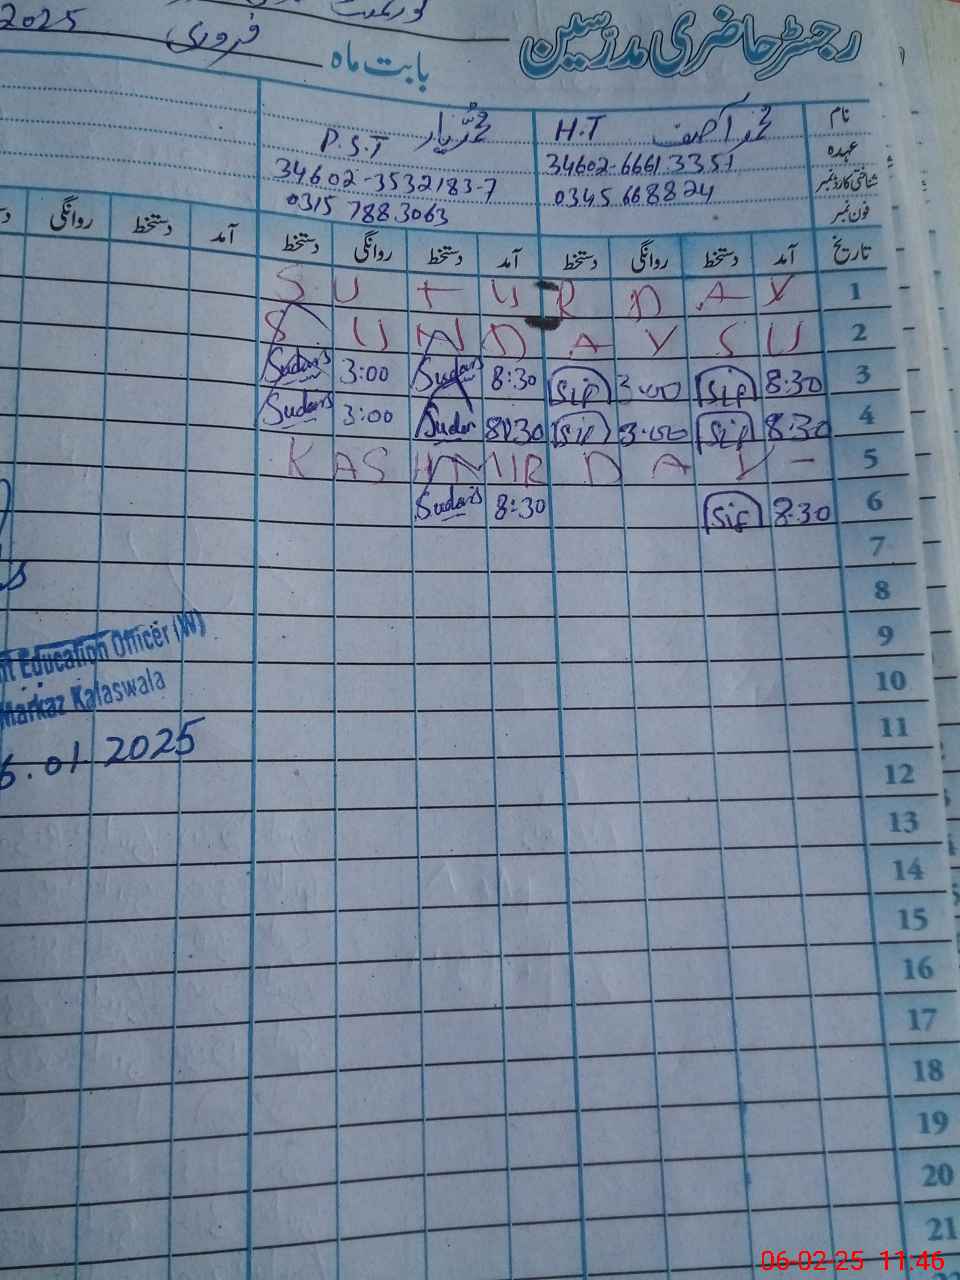 رجسٹر حاضری مدرسین
بابت ماہ فروری 2025
نام محمد آصف
عہدہ H.T P.S.T
شناختی کارڈ نمبر 34602-6661335 34602-3532183-7
فون نمبر 0345 668824 0315 7883063
تاریخ آمد دستخط روانگی دستخط آمد دستخط روانگی دستخط آمد دستخط روانگی
1 S U T U R D A Y
2 S U N D A Y S U
3 8:30 Sif 3:00 Sif 8:30 Sudais 3:00 Sudais
4 8:30 Sif 3:00 Sif 8:30 3:00 Sudais
5 K A S H M I R D A Y -
6 8:30 Sif 8:30 Sudais
7
8
9
10
11
12
13
14
15
16
17
18
19
20
21
Education Officer (W)
Markaz Kalaswala
.01 2025
06-02-25 11:46